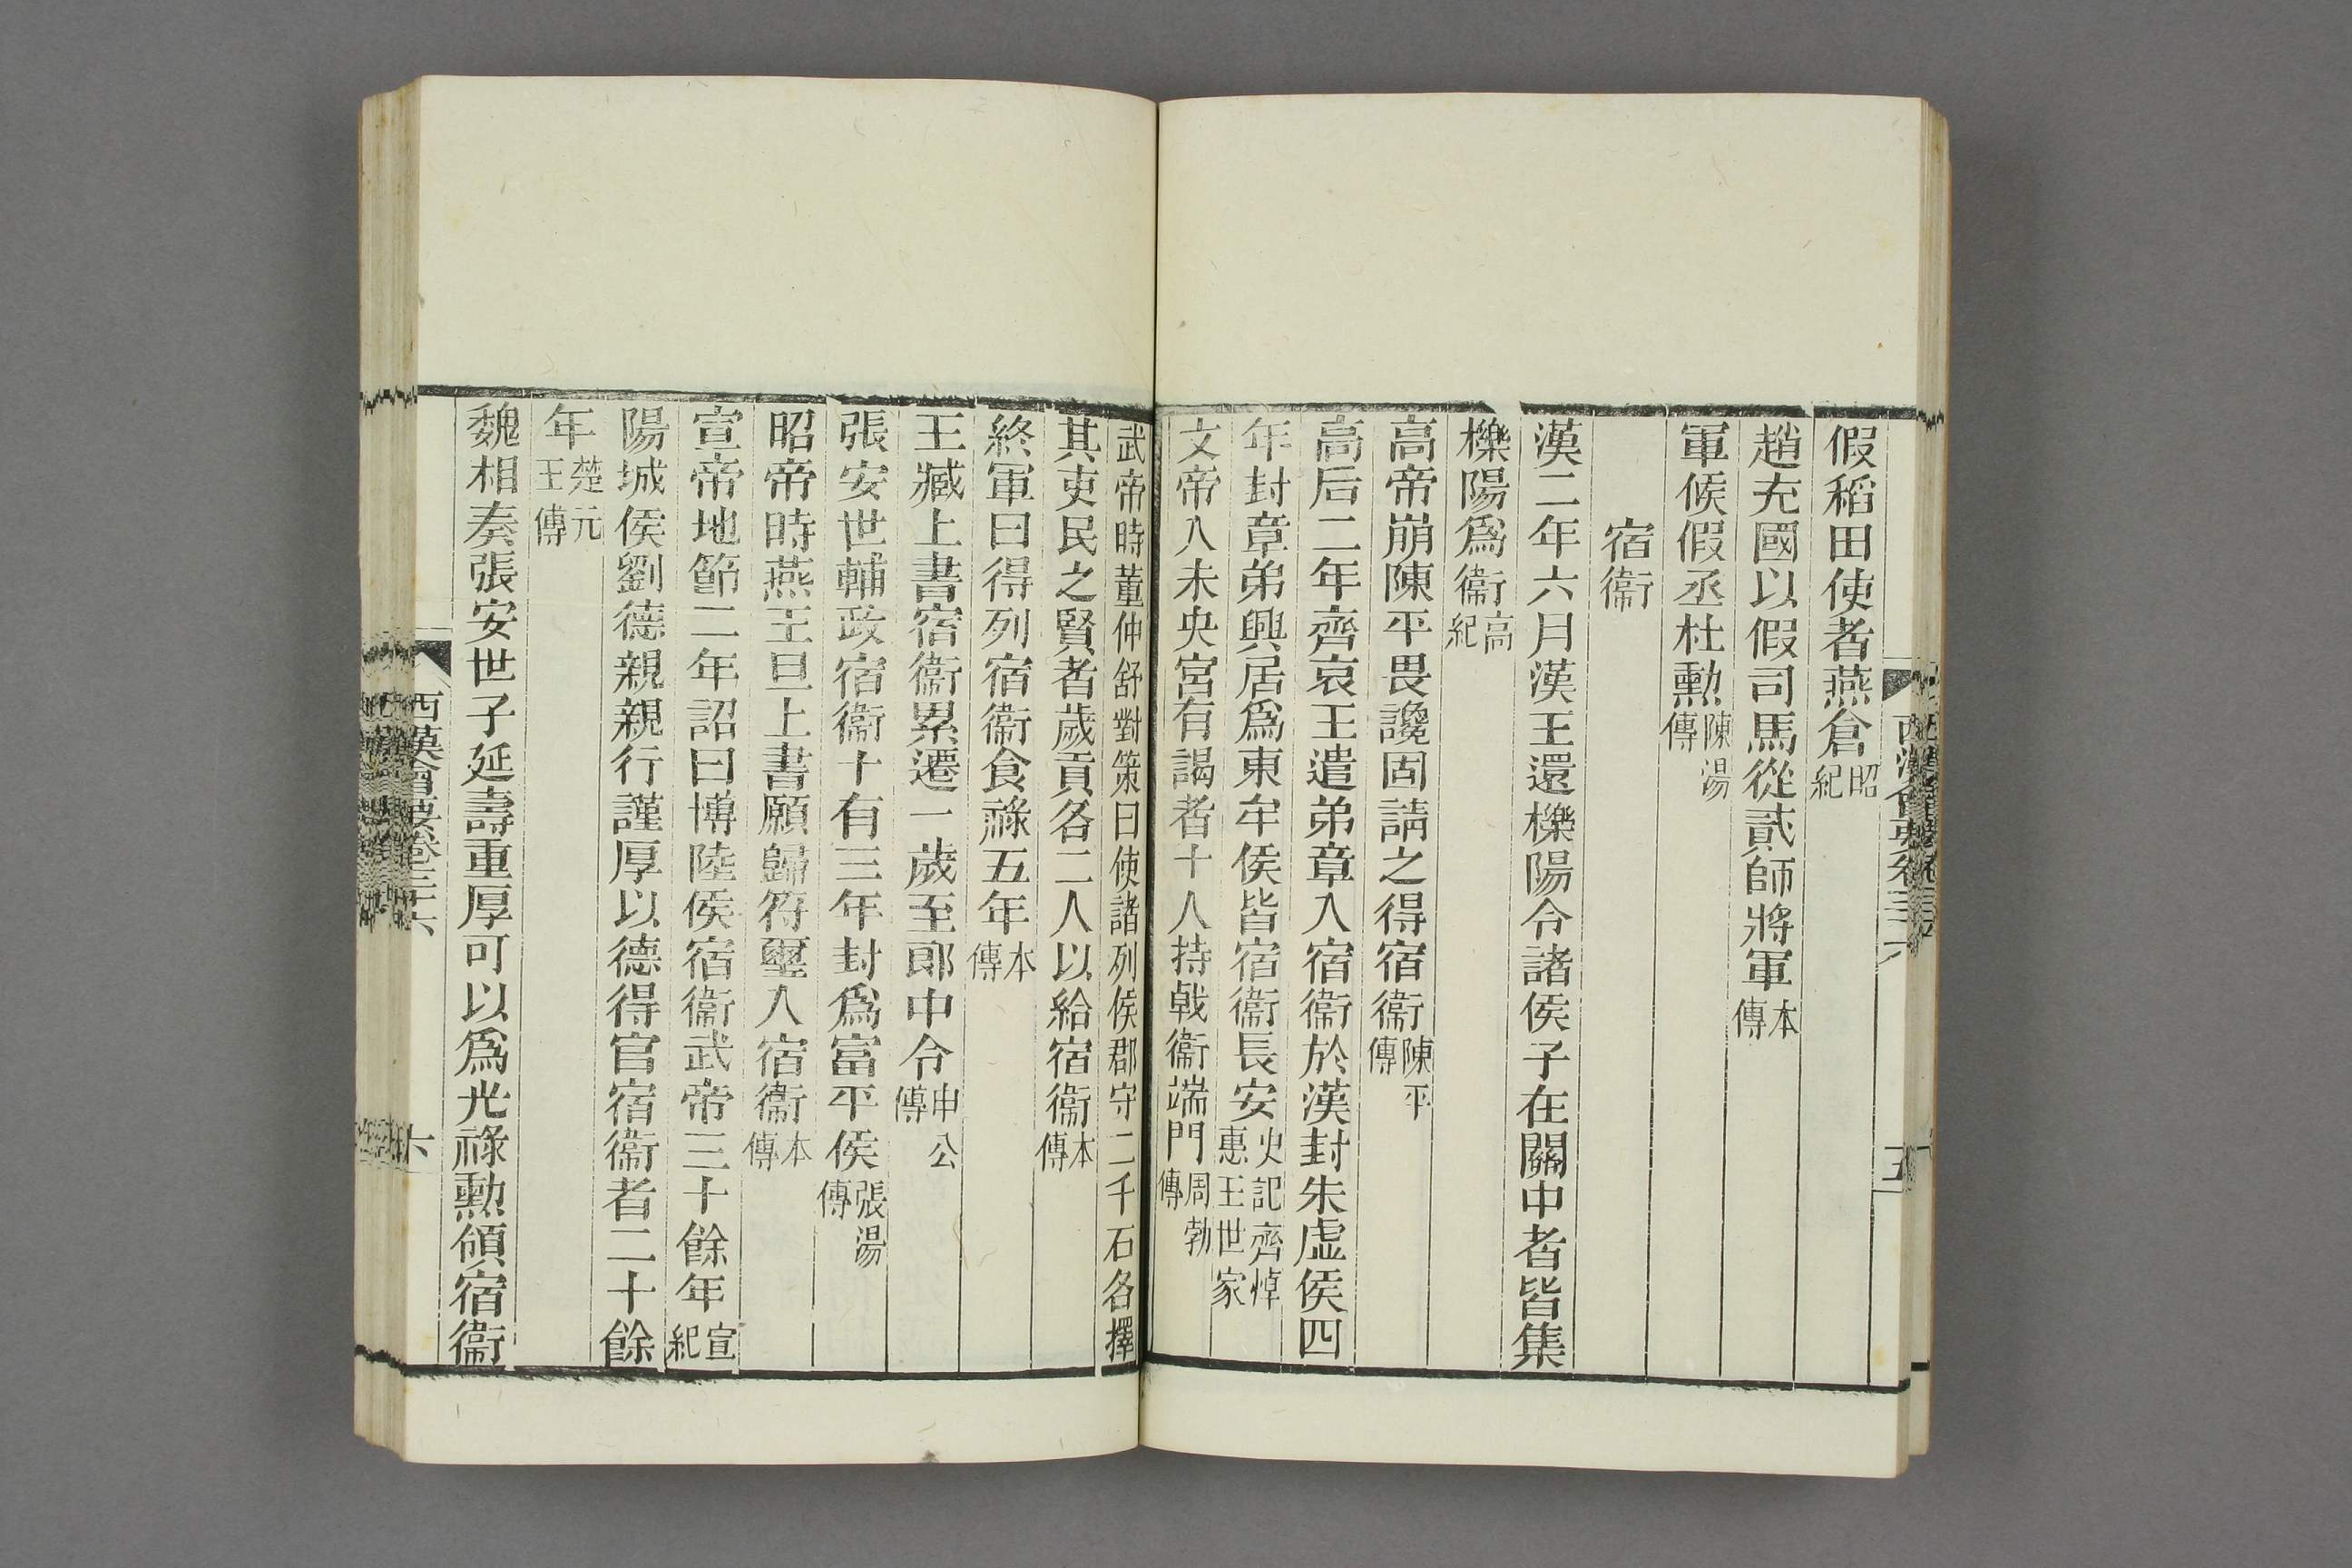 假稻田使者燕倉昭紀
趙充國以假司馬從貳師將軍本傳
軍候假丞杜勲陳湯傳
宿衞
漢二年六月漢王還櫟陽令諸侯子在關中者皆集
櫟陽爲衞高紀
高帝崩陳平畏讒固請之得宿衞陳平傳
高后二年齊哀王遣弟章入宿衞於漢封朱虛侯四
年封章弟興居爲東牟侯皆宿衞長安史記齊悼惠王世家
文帝入未央宮有謁者十人持戟衞端門周勃傳
武帝時董仲舒對策曰使諸列侯郡守二千石各擇
其吏民之賢者歲貢各二人以給宿衞本傳
終軍曰得列宿衞食祿五年本傳
王臧上書宿衞累遷一歲至郎中令申公傳
張安世輔政宿衞十有三年封爲富平侯張湯傳
昭帝時燕王旦上書願歸符璽入宿衞本傳
宣帝地節二年詔曰博陸侯宿衞武帝三十餘年宣紀
陽城侯劉德親親行謹厚以德得官宿衞者二十餘
年楚元王傳
魏相奏張安世子延壽重厚可以爲光祿勲領宿衞
西漢會要卷三十六
六